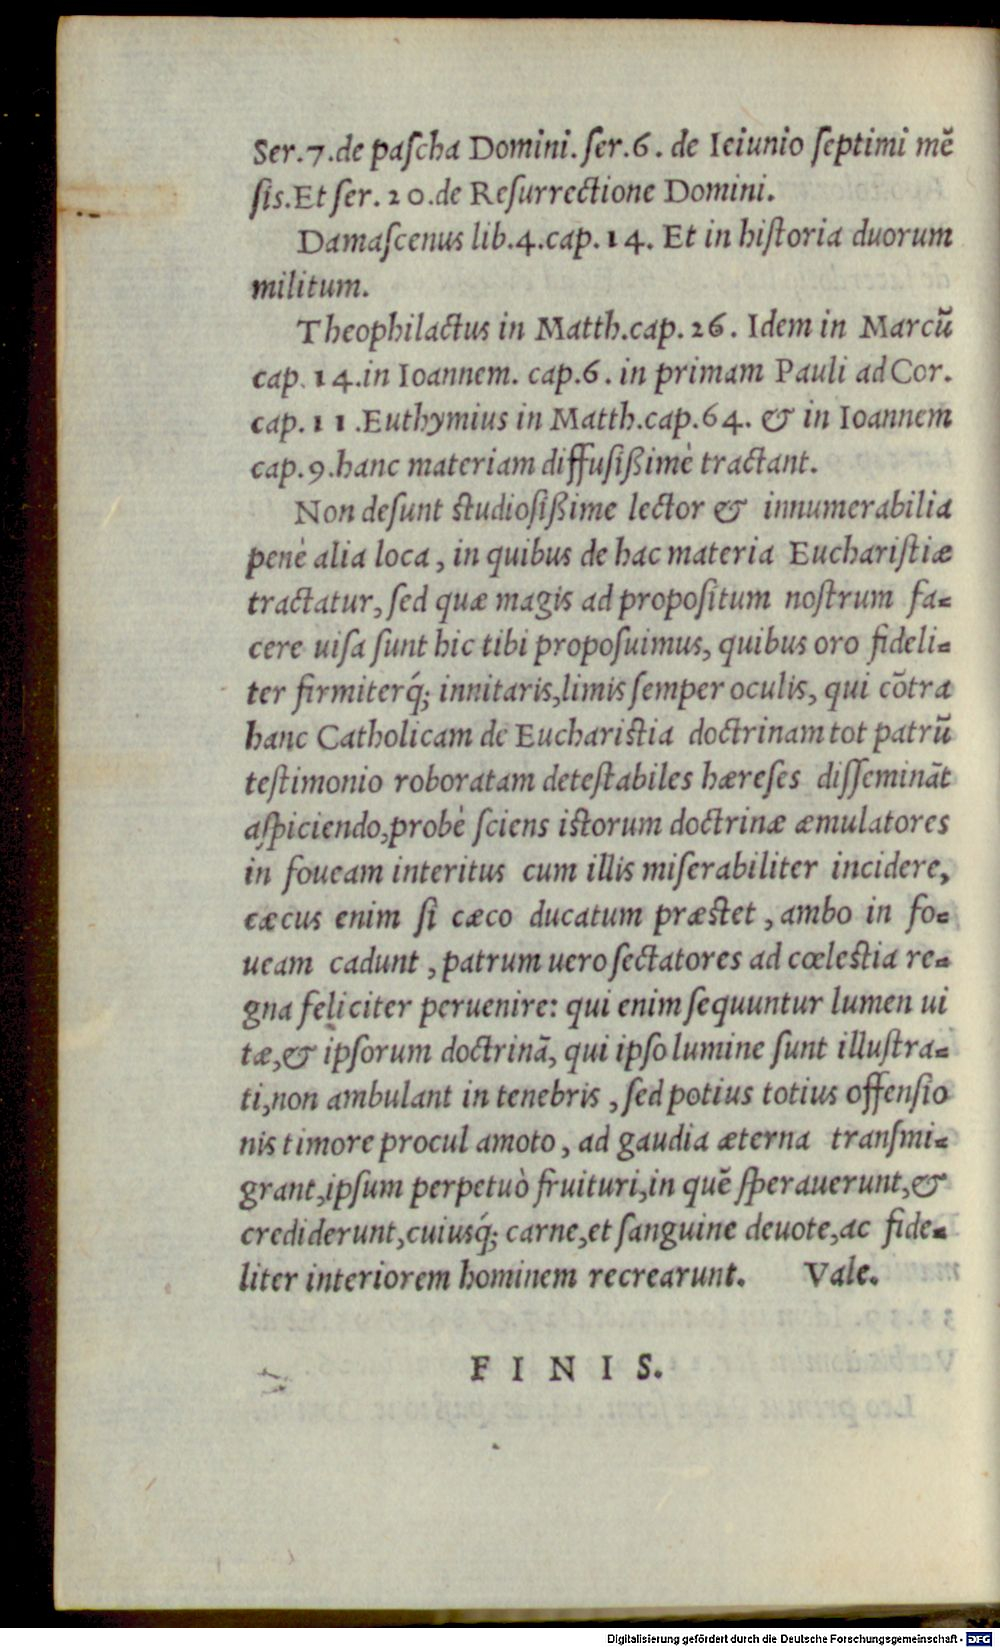 Ser.7.de paſcha Domini. ſer.6. de Ieiunio ſeptimi mẽ
ſis.Et ſer. 20.de Reſurrectione Domini.
Damaſcenus lib.4.cap.14. Et in hiſtoria duorum
militum.
Theophilactus in Matth.cap.26. Idem in Marcũ
cap.14.in Ioannem. cap.6. in primam Pauli ad Cor.
cap.11.Euthymius in Matth.cap.64. & in Ioannem
cap.9.hanc materiam diffuſißimè tractant.
Non deſunt ſtudioſißime lector & innumerabilia
penè alia loca, in quibus de hac materia Euchariſtiæ
tractatur, ſed quæ magis ad propoſitum noſtrum fa-
cere uiſa ſunt hic tibi propoſuimus, quibus oro fideli-
ter firmiterq́; innitaris,limis ſemper oculis, qui cõtra
hanc Catholicam de Euchariſtia doctrinam tot patrũ
teſtimonio roboratam deteſtabiles hæreſes diſſeminãt
aſpiciendo,probè ſciens iſtorum doctrinæ æmulatores
in foueam interitus cum illis miſerabiliter incidere,
cæcus enim ſi cæco ducatum præſtet, ambo in fo-
ueam cadunt, patrum uero ſectatores ad cœleſtia re-
gna feliciter peruenire: qui enim ſequuntur lumen ui
tæ,& ipſorum doctrinã, qui ipſo lumine ſunt illuſtra-
ti,non ambulant in tenebris, ſed potius totius offenſio
nis timore procul amoto, ad gaudia æterna tranſmi-
grant,ipſum perpetuò fruituri,in quẽ ſperauerunt,&
crediderunt,cuiusq́; carne,et ſanguine deuote,ac fide-
liter interiorem hominem recrearunt. Vale.
FINIS.
Digitalisierung gefördert durch die Deutsche Forschungsgemeinschaft - DFG